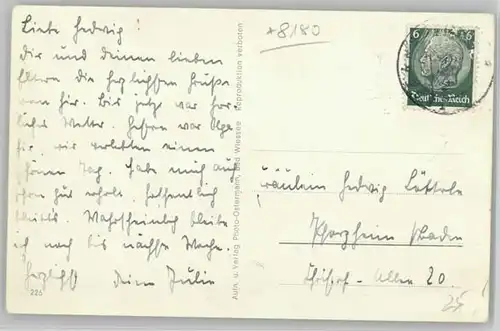 Liebe Hedwig!
Dir und deinen lieben
Eltern die herzlichsten Grüße
von hier. Bis jetzt war herr-
liches Wetter. Gestern war Olga
hier, wir verlebten einen
schönen Tag. Habe mich auch
schon gut erholt. Hoffentlich
bleibts. Wahrscheinlich bleibe
ich noch bis nächste Woche.
Herzlichst Deine Julie
226
Aufn. u. Verlag Photo-Ostermann, Bad Wiessee Reproduktion verboten
*8180
6 6
Deutsches Reich
Fräulein Hedwig
Pforzheim Baden
Christof-Allee 20.
25